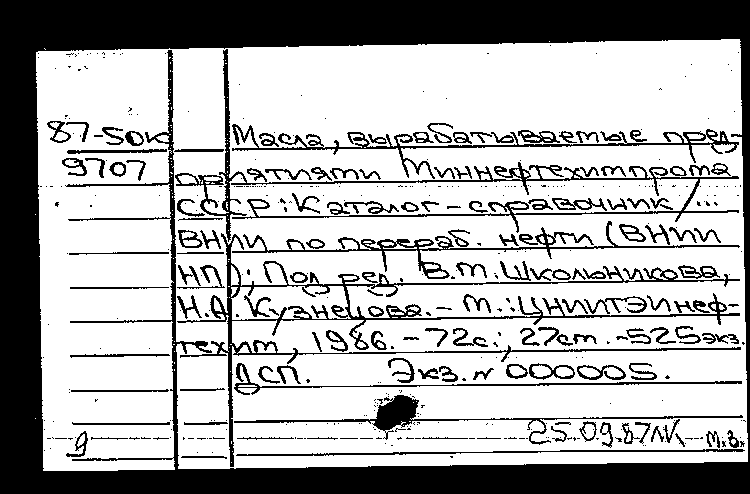 87-50к Масла, вырабатываемые пред-
9707 приятиями Миннефтехимпрома
СССР: Каталог-справочник / ...
ВНИИ по перераб. нефти (ВНИИ
НП); Под ред. В.М. Школьникова,
Н.А. Кузнецова. - М.: ЦНИИТЭИнеф-
техим, 1986. - 72с.; 27см. - 525экз.
ДСП. Экз. № 000005.
25.09.87ЛК м.в.
9